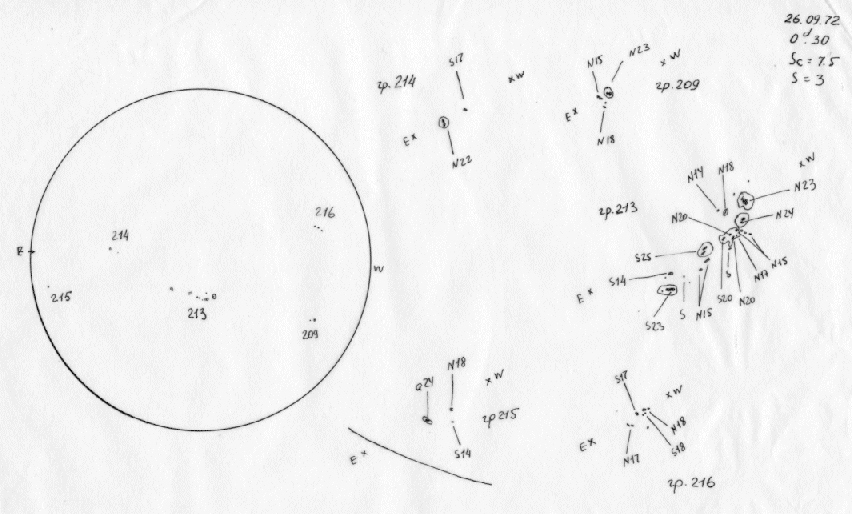 26.09.72
0ᵈ.30
Sc = 7.5
S = 3
гр. 214
S17
x W
E x
N22
N15
N23
x W
гр. 209
E x
N18
гр. 213
N14
N18
x W
N23
N20
N24
S25
N15
S14
N17
S
E x
S23
S
N15
S20
N20
216
214
E
W
215
213
209
Q24
N18
x W
гр 215
S14
E x
S17
x W
N18
S18
E x
N17
гр. 216